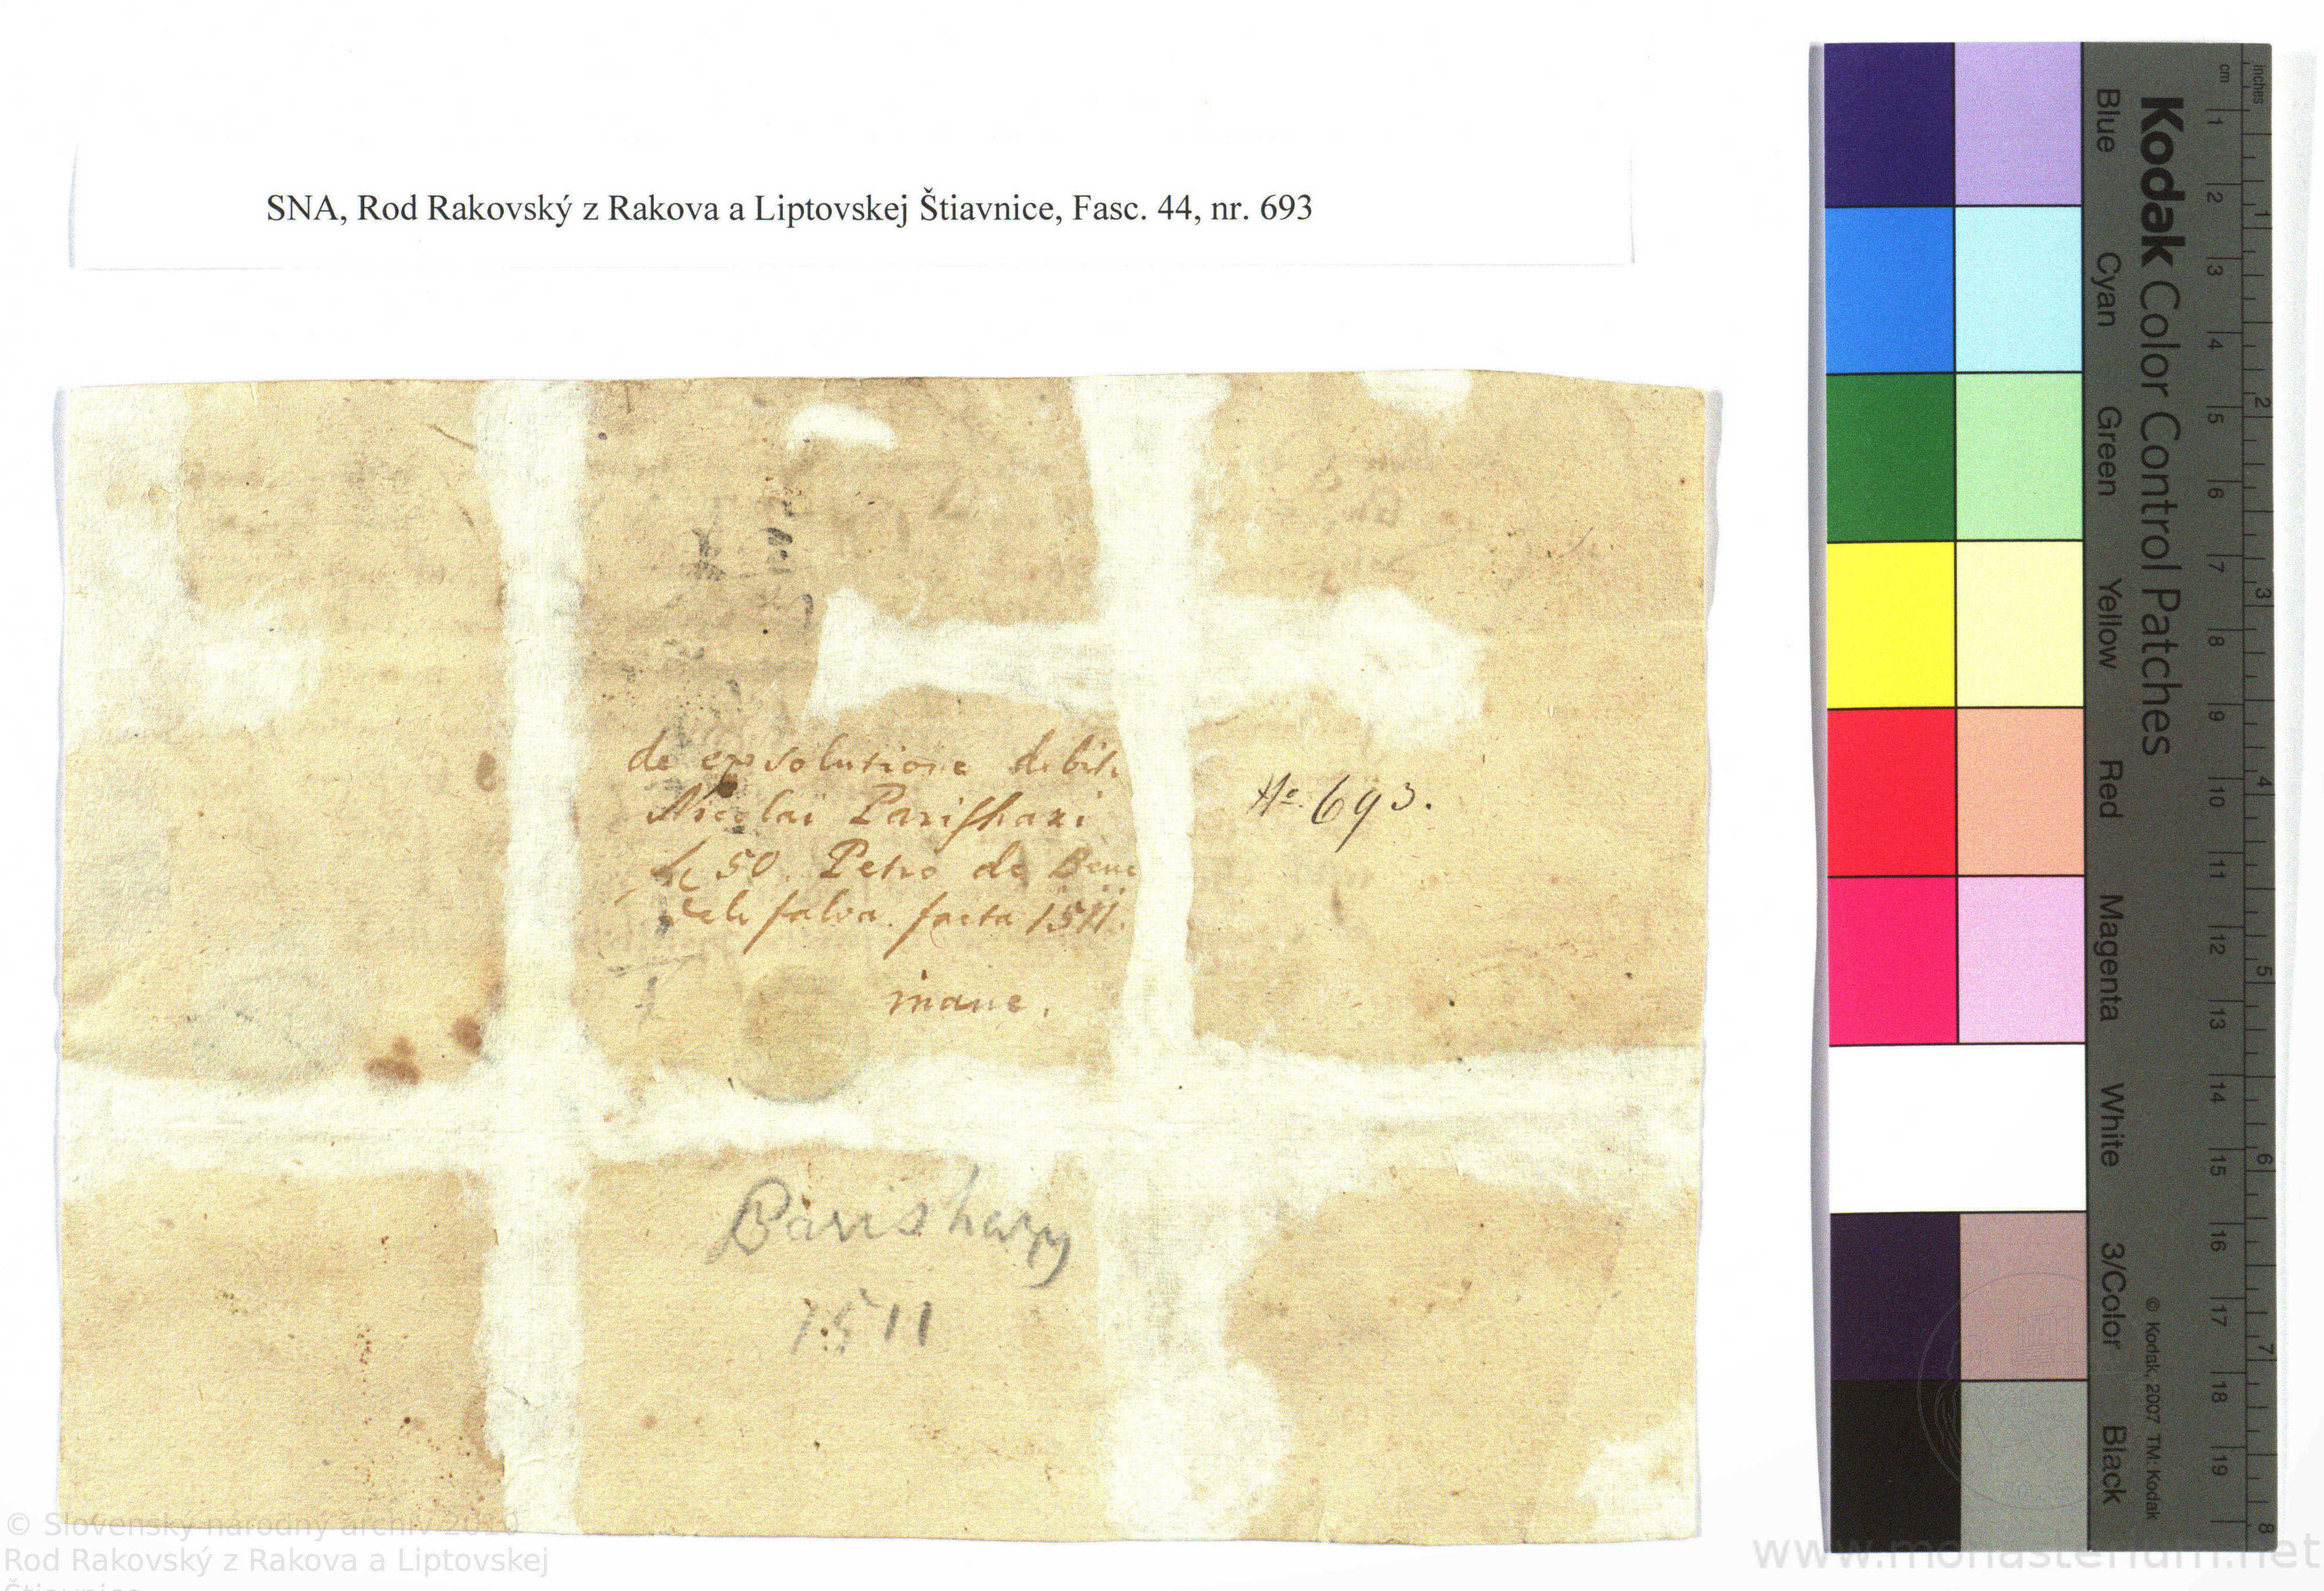 SNA, Rod Rakovský z Rakova a Liptovskej Štiavnice, Fasc. 44, nr. 693
de exsolutione debiti
Nicolai Parishazi
50. Petro de Bene
falva. facta 1511.
inane.
No. 693.
Parishazy
1511
Kodak Color Control Patches
Blue Cyan Green Yellow Red Magenta White 3/Color Black
© Kodak, 2007 TM: Kodak
cm 1 2 3 4 5 6 7 8 9 10 11 12 13 14 15 16 17 18 19
inches 1 2 3 4 5 6 7 8
© Slovenský národný archív 2010
Rod Rakovský z Rakova a Liptovskej
Štiavnice
www.monasterium.net